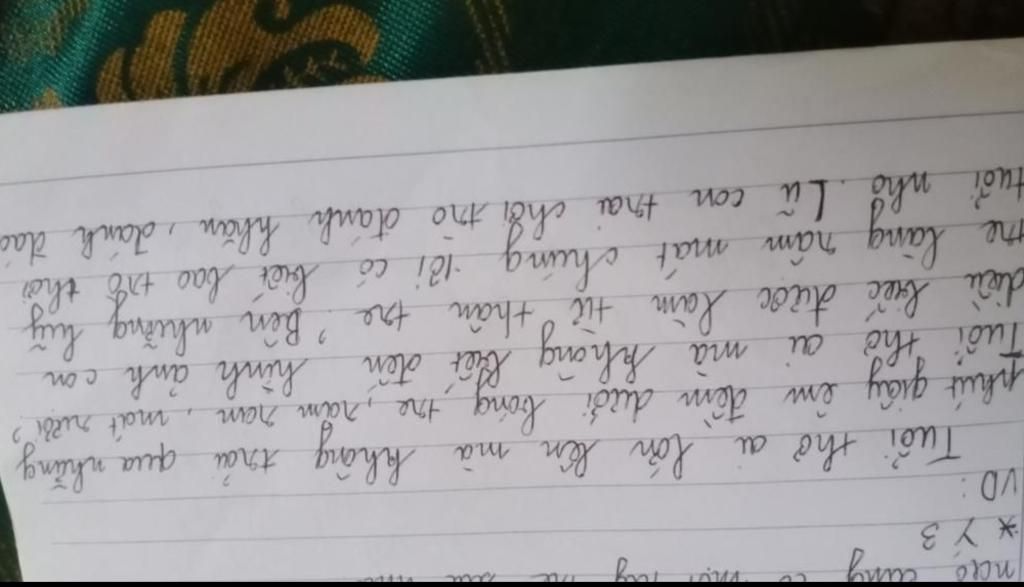 nào cũng có một lũy tre
* Ý 3
VD :
Tuổi thơ ai lớn lên mà không trải qua những
phút giây êm đềm dưới bóng tre, râm ran, mát rười?
Tuổi thơ ai mà không biết đến hình ảnh con
diều biếc được làm từ thân tre. Bên những luỹ
tre làng râm mát chúng tôi có biết bao trò thời
tuổi nhỏ. Lũ con trai chơi trò đánh khăn, đánh đáo